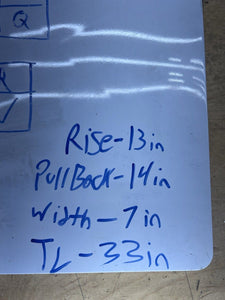 Q
Rise-13in
PullBack-14in
Width-7in
TL-33in